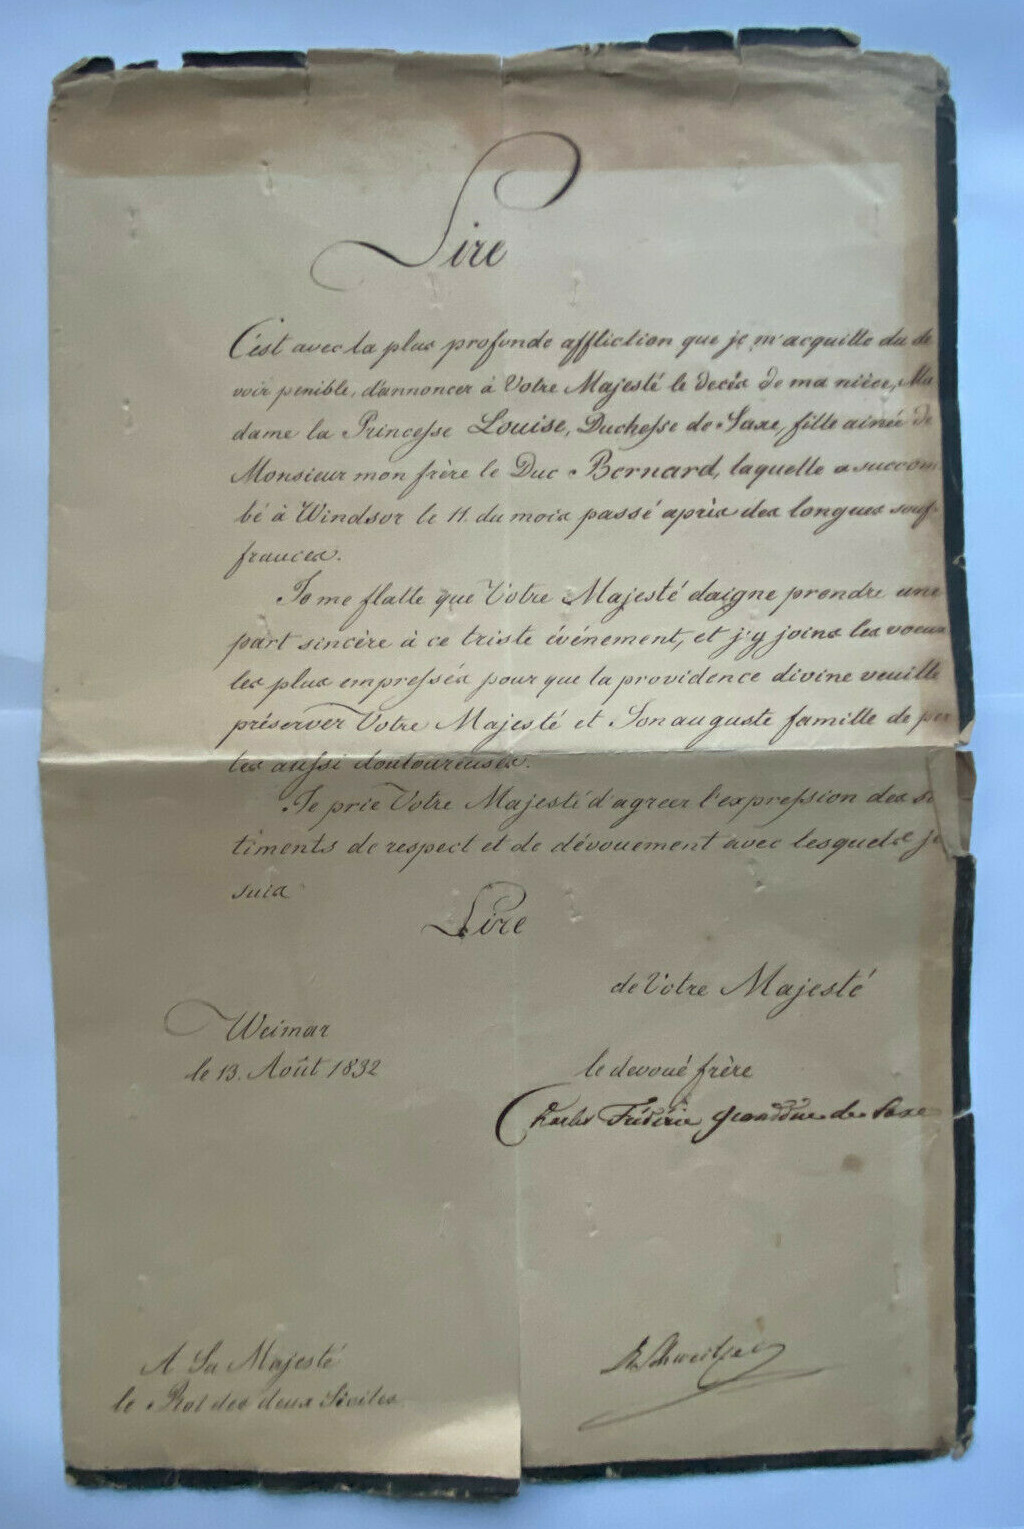 Sire
C'est avec la plus profonde affliction que je m'acquitte du de
voir penible, d'annoncer à Votre Majesté le decès de ma nièce, Ma
dame la Princesse Louise, Duchesse de Saxe, fille ainée de
Monsieur mon frère le Duc Bernard, laquelle a succom
bé à Windsor le 11. du mois passé après des longues souf-
frances.
Je me flatte que Votre Majesté daigne prendre une
part sincère à ce triste événement, et j'y joins les voeux
les plus empressés pour que la providence divine veuille
préserver Votre Majesté et Son auguste famille de per
tes aussi douloureuses.
Je prie Votre Majesté d'agreer l'expression des
timents de respect et de dévouement avec lesquels je
suis
Sire
de Votre Majesté
Weimar
le 13. Août 1832
le devoué frère
Charles Fréderic grandduc de Saxe
Schweitzer
A Sa Majesté
le Roi des deux Siciles